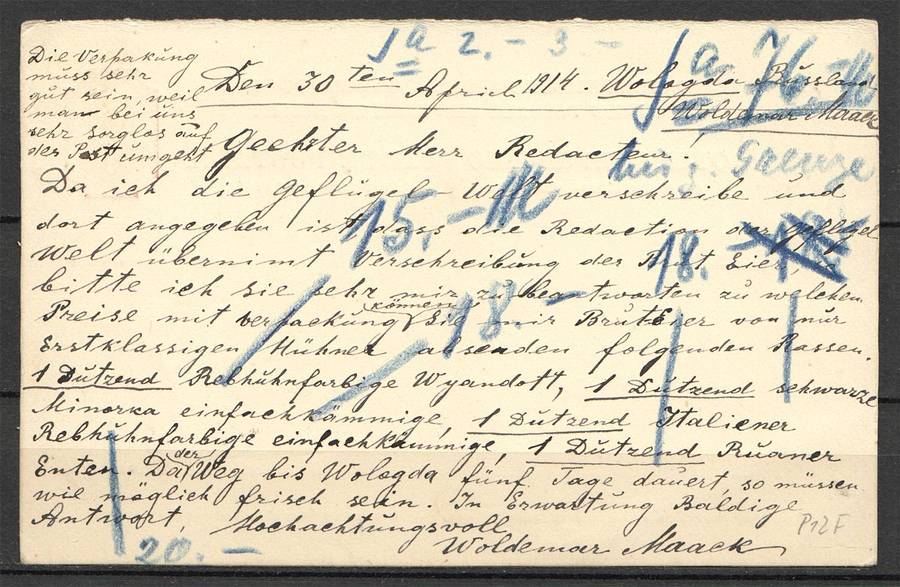 Die Verpakung
muss sehr
gut sein, weil
man bei uns
sehr sorglos auf
der Post umgeht
Ja 2.- 3 -
Ja 76.-M
Den 30 ten April 1914. Wologda Russland
Woldemar Maack
Geehrter Herr Redacteur!
bis z. Grenze
Da ich die Geflügel-Welt verschreibe und
dort angegeben ist, dass die Redaction der Geflügel
Welt übernimt Verschreibung der Brut Eier, so
bitte ich Sie sehr mir zu beantworten zu welchen
Preise mit verpackung können Sie mir BrutEier von nur
Erstklassigen Hühner absenden folgenden Rassen.
1 Dutzend Rebhuhnfarbige Wyandott, 1 Dutzend schwarze
Minorka einfachkämmige, 1 Dutzend Italiener
Rebhuhnfarbige einfachkämmige, 1 Dutzend Ruaner
Enten. Da der Weg bis Wologda fünf Tage dauert, so müssen
wie möglich frisch sein. In Erwartung Baldige
Antwort, Hochachtungsvoll
Woldemar Maack
15.-M
18.-
18.-
20.-
P12F